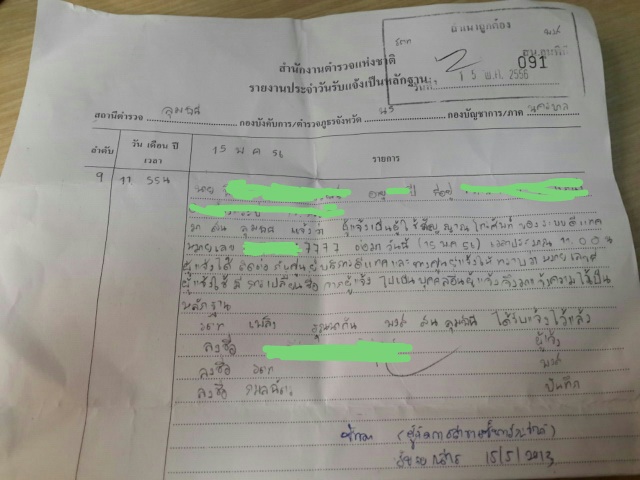 สำเนาถูกต้อง
091
15 พ.ค. 2556
สำนักงานตำรวจแห่งชาติ
รายงานประจำวันรับแจ้งเป็นหลักฐาน
สถานีตำรวจ ลุมพินี กองบังคับการ/ตำรวจภูธรจังหวัด น.5 กองบัญชาการ/ภาค นครบาล
ลำดับ วัน เดือน ปี เวลา 15 พ ค 56 รายการ
9 11 55 น
นาย อายุ ปี ที่อยู่
มา สน ลุมพินี แจ้งว่า ผู้แจ้งเป็นผู้ใช้สัญญาณโทรศัพท์ ของระบบดีแทค
หมายเลข 7777 ต่อมา วันนี้ (15 พ.ค. 56) เวลาประมาณ 11.00 น
ผู้แจ้งได้ ติดต่อ กับศูนย์บริการดีแทคและทางศูนย์แจ้งให้ทราบว่า หมายเลขที่
ผู้แจ้งใช้ มีการเปลี่ยนชื่อ จากผู้แจ้ง ไปเป็นบุคคลอื่น ผู้แจ้งจึงมาแจ้งความไว้เป็น
หลักฐาน
พงส สน ลุมพินี ได้รับแจ้งไว้แล้ว
ลงชื่อ ผู้แจ้ง
ลงชื่อ พงส
ลงชื่อ บันทึก
15/5/2013